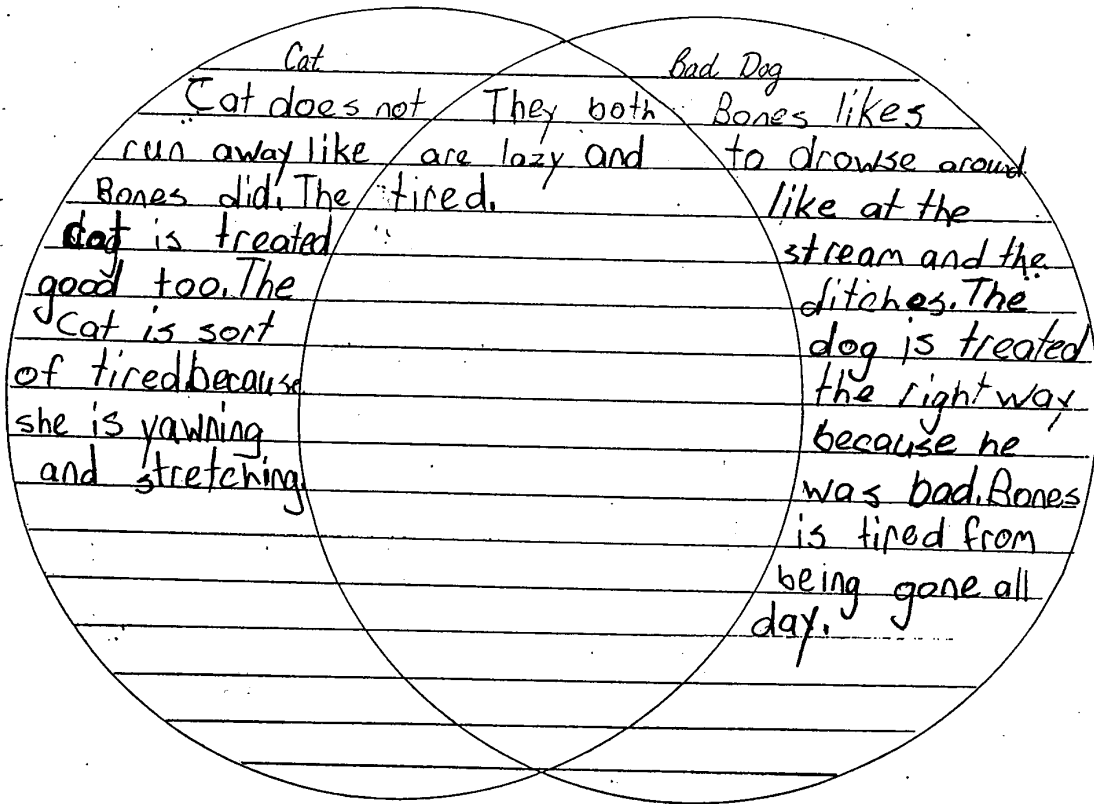 Cat
Cat does not
run away like
Bones did. The
is treated
good too. The
Cat is sort
of tired because
she is yawning
and stretching.
They both
are lazy and
tired.
Bad Dog
Bones likes
to drowse around
like at the
stream and the
ditches. The
dog is treated
the right way
because he
was bad. Bones
is tired from
being gone all
day.